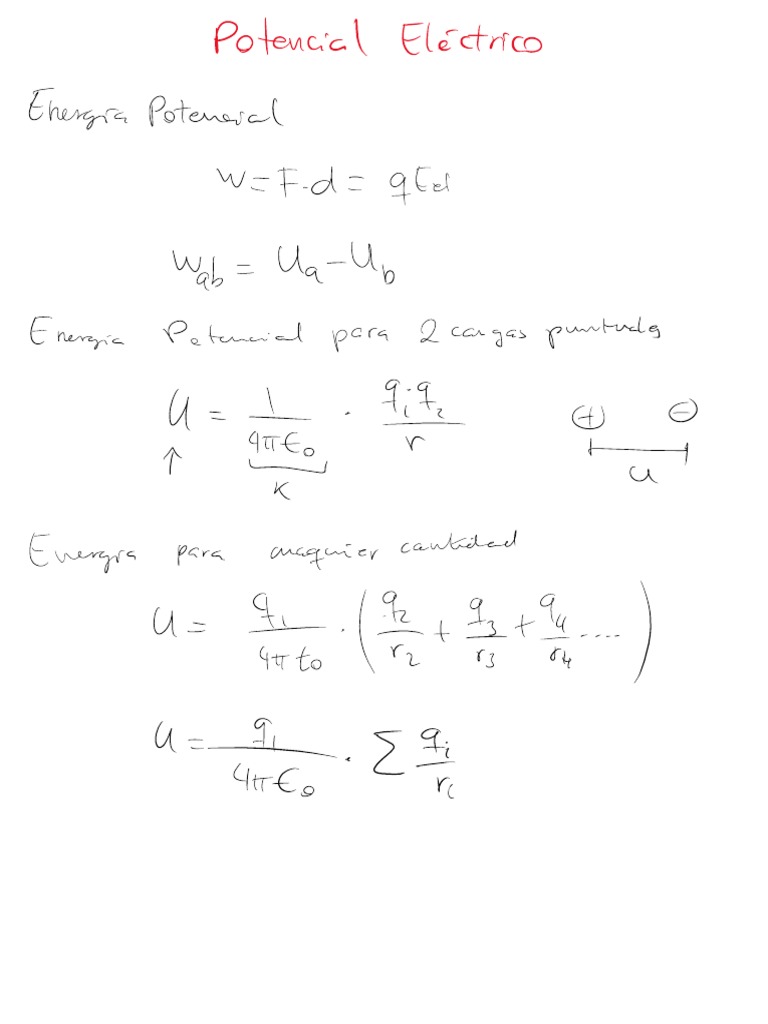 Potencial Eléctrico
Energía Potencial
W = F.d = qEd
Wab = Ua - Ub
Energía Potencial para 2 cargas puntuales
U = 1/4πε₀ · q₁·q₂/r
↑
K
+ -
u
Energía para cuaquier cantidad
U = q₁/4πε₀ · (q₂/r₂ + q₃/r₃ + q₄/r₄ ....)
U = q₁/4πε₀ · Σ qᵢ/rᵢ